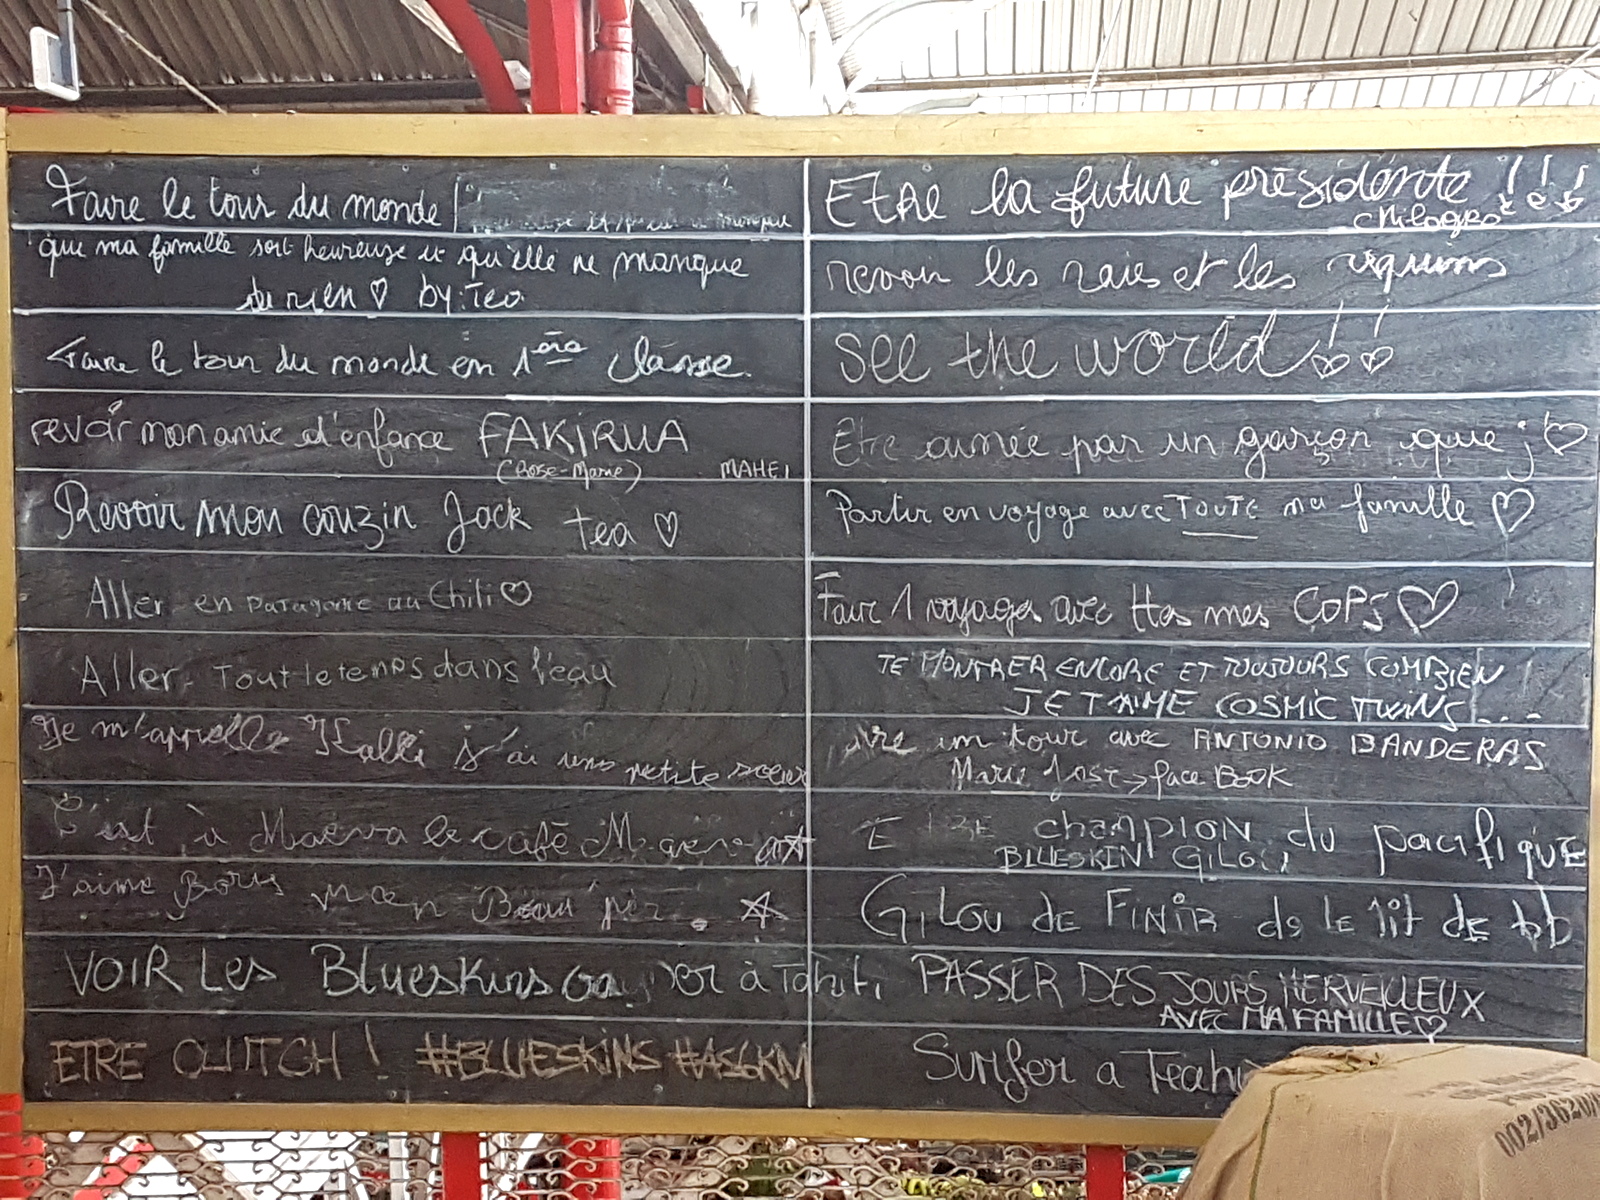 Faire le tour du monde
que ma famille soit heureuse et qu'elle ne manque
de rien ♡ by: Teo
Faire le tour du monde en 1ère classe.
revoir mon amie d'enfance FAKIRUA
(Rose-Marie) MAHEI
Revoir mon couzin Jack tea ♡
Aller en Patagonie au Chili ♡
Aller Tout le temps dans l'eau
Je m'appelle j'ai une petite soeur
C'est à Maeva le café
J'aime Boris mon Beau
VOIR Les Blueskins à Tahiti
ETRE CLUTCH ! #BLUESKINS #AS6KM
Etre la future présidente !!!
revoir les raies et les requins
See the world !!
Etre aimée par un garçon que j ♡
Partir en voyage avec TOUTE ma famille ♡
Faire 1 voyages avec ttes mes COPS ♡
TE MONTRER ENCORE ET TOUJOURS COMBIEN
JE T'AIME COSMIC TWINS ...
un tour avec ANTONIO BANDERAS
Marie Jose → face BOOK
champion du pacifique
BLUESKIN GILOU
GILOU de FINIR de le lit de bb
PASSER DES JOURS MERVEILLEUX
AVEC MA FAMILLE ♡
Surfer a Teahu
002/3620/